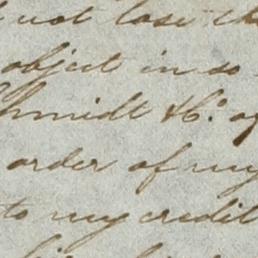 not lose th
object in so
chmidt & Co. of
order of my
to my credit